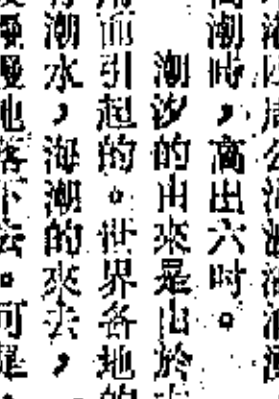 潮時，高出六吋。
潮汐的由來是由於
而引起的。世界各地的
潮水，海潮的來去，
慢地落下去。可是